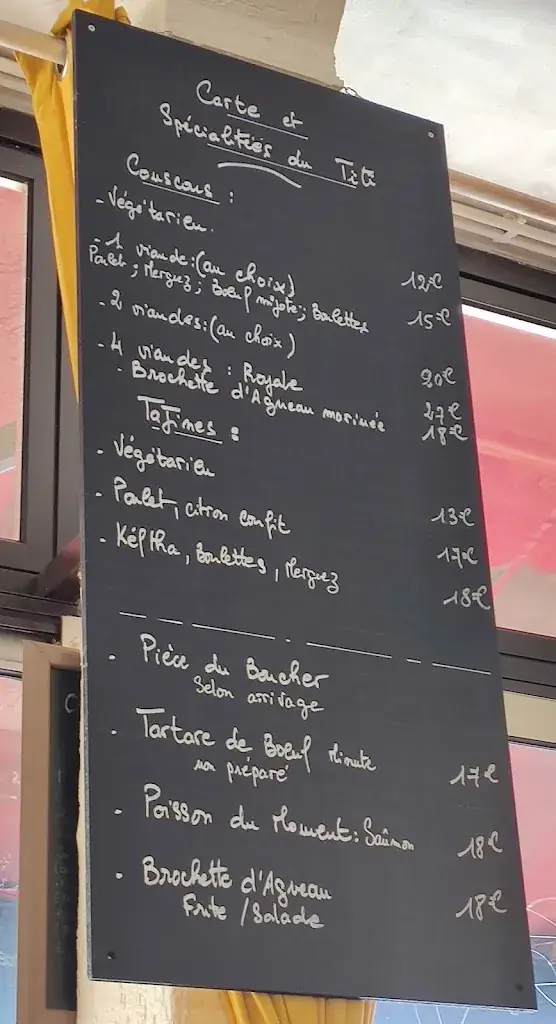 Carte et
Spécialitées du Titi
Couscous :
- Végétarien. 12€
- 1 viande : (au choix) 15€
Poulet ; Merguez ; Bœuf mijoté ; Boulettes
- 2 viandes : (au choix) 20€
- 4 viandes : Royale 27€
- Brochette d'Agneau marinée 18€
Tajines :
- Végétarien 13€
- Poulet, citron confit 17€
- Kéftha, Boulettes, Merguez 18€
- Pièce du Boucher
Selon arrivage
- Tartare de Bœuf Minute 17€
non préparé
- Poisson du Moment : Saûmon 18€
- Brochette d'Agneau 18€
Frite / Salade